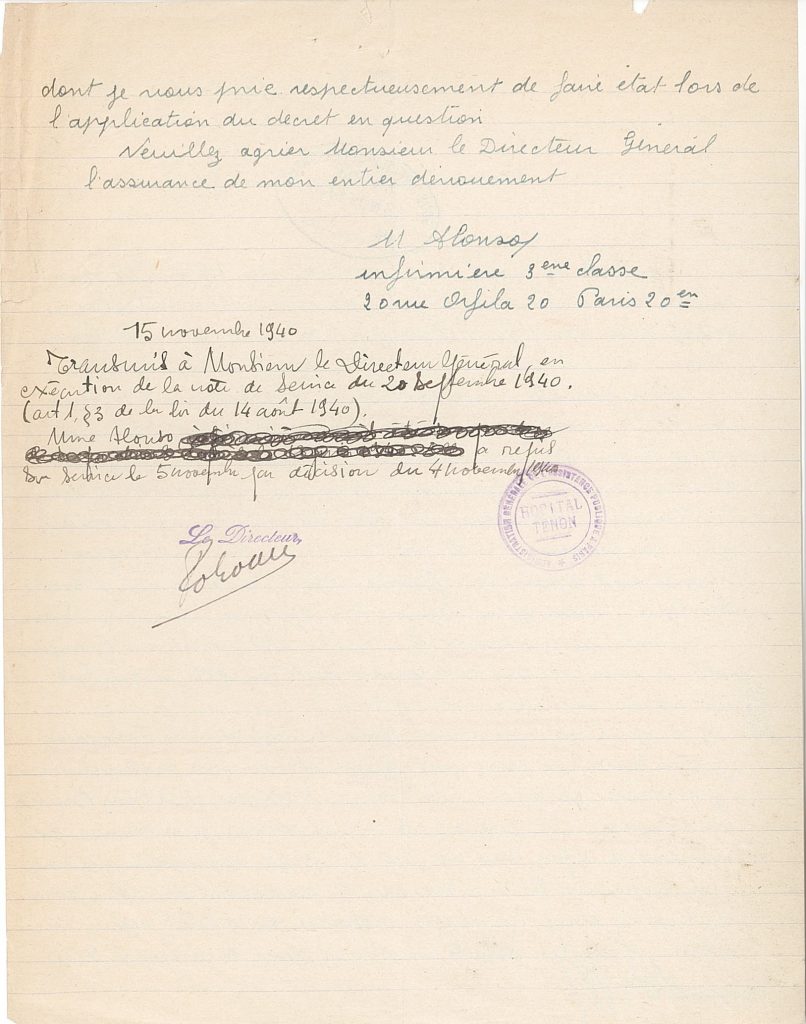 dont je vous prie respectueusement de faire état lors de
l'application du décret en question
Veuillez agrier Monsieur le Directeur Général
l'assurance de mon entier dévouement
M Alonso
infirmière 3ème classe
20 rue Orfila 20 Paris 20en
15 novembre 1940
Transmis à Monsieur le Directeur Général, en
exécution de la note de service du 20 Septembre 1940.
(art 1, §3 de la loi du 14 août 1940).
Mme Alonso
a repris
son service le 5 novembre par décision du 4 novembre 1940
Le Directeur,
ADMINISTRATION GÉNÉRALE DE L'ASSISTANCE PUBLIQUE À PARIS
HOPITAL
TENON